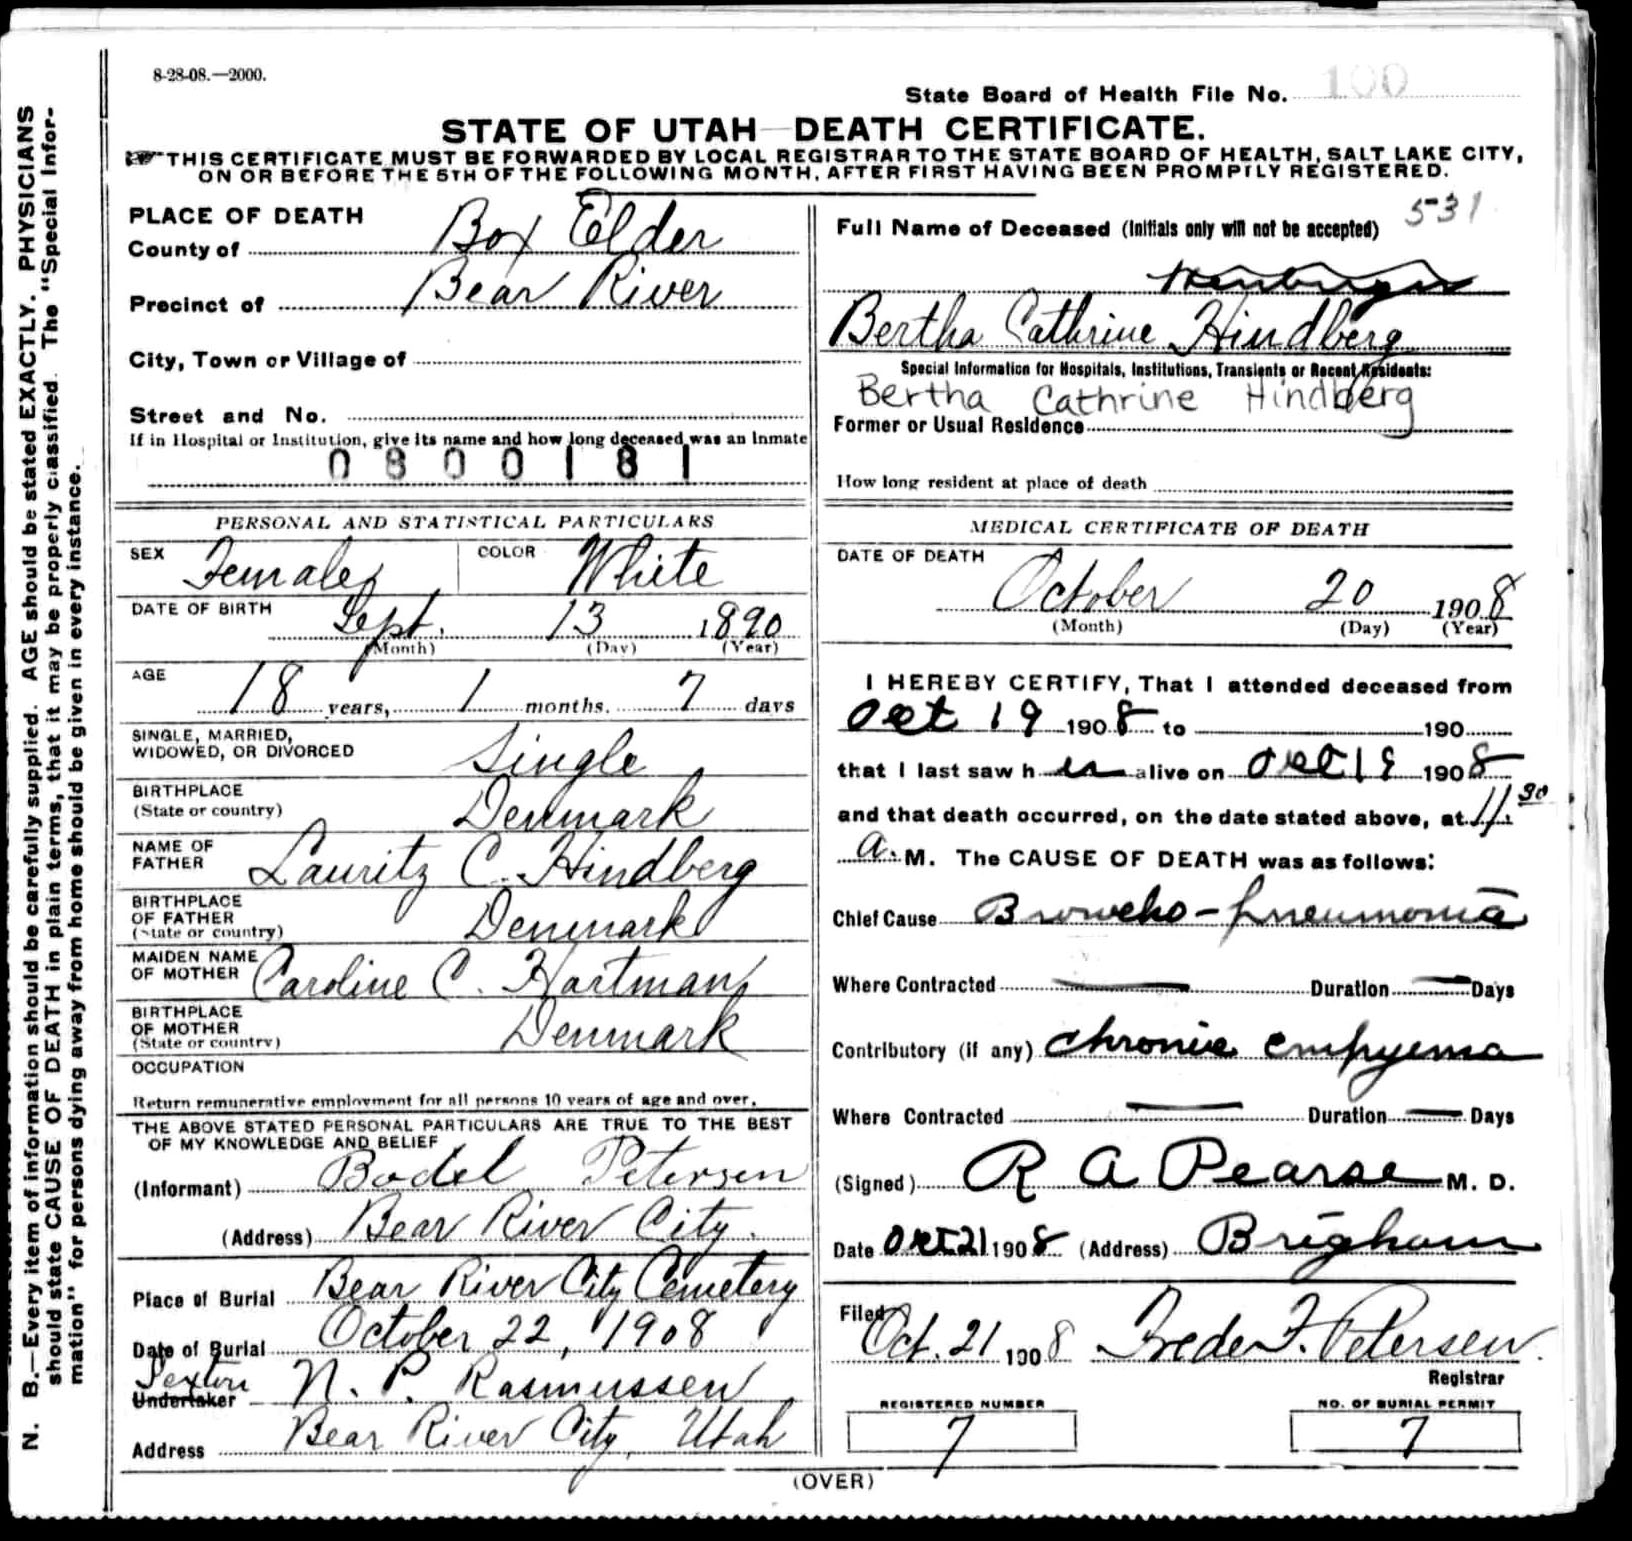 8-28-08.—2000.
State Board of Health File No. 100
STATE OF UTAH—DEATH CERTIFICATE.
THIS CERTIFICATE MUST BE FORWARDED BY LOCAL REGISTRAR TO THE STATE BOARD OF HEALTH, SALT LAKE CITY,
ON OR BEFORE THE 5TH OF THE FOLLOWING MONTH, AFTER FIRST HAVING BEEN PROMPTLY REGISTERED.
N. B.—Every item of information should be carefully supplied. AGE should be stated EXACTLY. PHYSICIANS
should state CAUSE OF DEATH in plain terms, that it may be properly classified. The "Special Infor-
mation" for persons dying away from home should be given in every instance.
PLACE OF DEATH
County of Box Elder
Precinct of Bear River
City, Town or Village of
Street and No.
If in Hospital or Institution, give its name and how long deceased was an Inmate
0800181
PERSONAL AND STATISTICAL PARTICULARS
SEX Female COLOR White
DATE OF BIRTH Sept. 13 1890
(Month) (Day) (Year)
AGE 18 years, 1 months. 7 days
SINGLE, MARRIED,
WIDOWED, OR DIVORCED Single
BIRTHPLACE
(State or country) Denmark
NAME OF
FATHER Lauritz C. Hindberg
BIRTHPLACE
OF FATHER
(State or country) Denmark
MAIDEN NAME
OF MOTHER Caroline C. Hartman
BIRTHPLACE
OF MOTHER
(State or country) Denmark
OCCUPATION
Return remunerative employment for all persons 10 years of age and over.
THE ABOVE STATED PERSONAL PARTICULARS ARE TRUE TO THE BEST
OF MY KNOWLEDGE AND BELIEF
(Informant) Bodel Petersen
(Address) Bear River City.
Place of Burial Bear River City Cemetery
Date of Burial October 22, 1908
Sexton
Undertaker N. P. Rasmussen
Address Bear River City, Utah
Full Name of Deceased (Initials only will not be accepted) 531
Bertha Cathrine Hindberg
Special Information for Hospitals, Institutions, Transients or Recent Residents:
Bertha Cathrine Hindberg
Former or Usual Residence
How long resident at place of death
MEDICAL CERTIFICATE OF DEATH
DATE OF DEATH
October 20 1908
(Month) (Day) (Year)
I HEREBY CERTIFY, That I attended deceased from
Oct 19 1908 to 190
that I last saw her alive on Oct 19 1908
and that death occurred, on the date stated above, at 11.30
a. M. The CAUSE OF DEATH was as follows:
Chief Cause Broncho-pneumonia
Where Contracted — Duration — Days
Contributory (if any) chronic empyema
Where Contracted — Duration — Days
(Signed) R A Pearse M. D.
Date Oct 21 1908 (Address) Brigham
Filed Oct. 21 1908 Frede F. Petersen.
Registrar
REGISTERED NUMBER
7
NO. OF BURIAL PERMIT
7
(OVER)